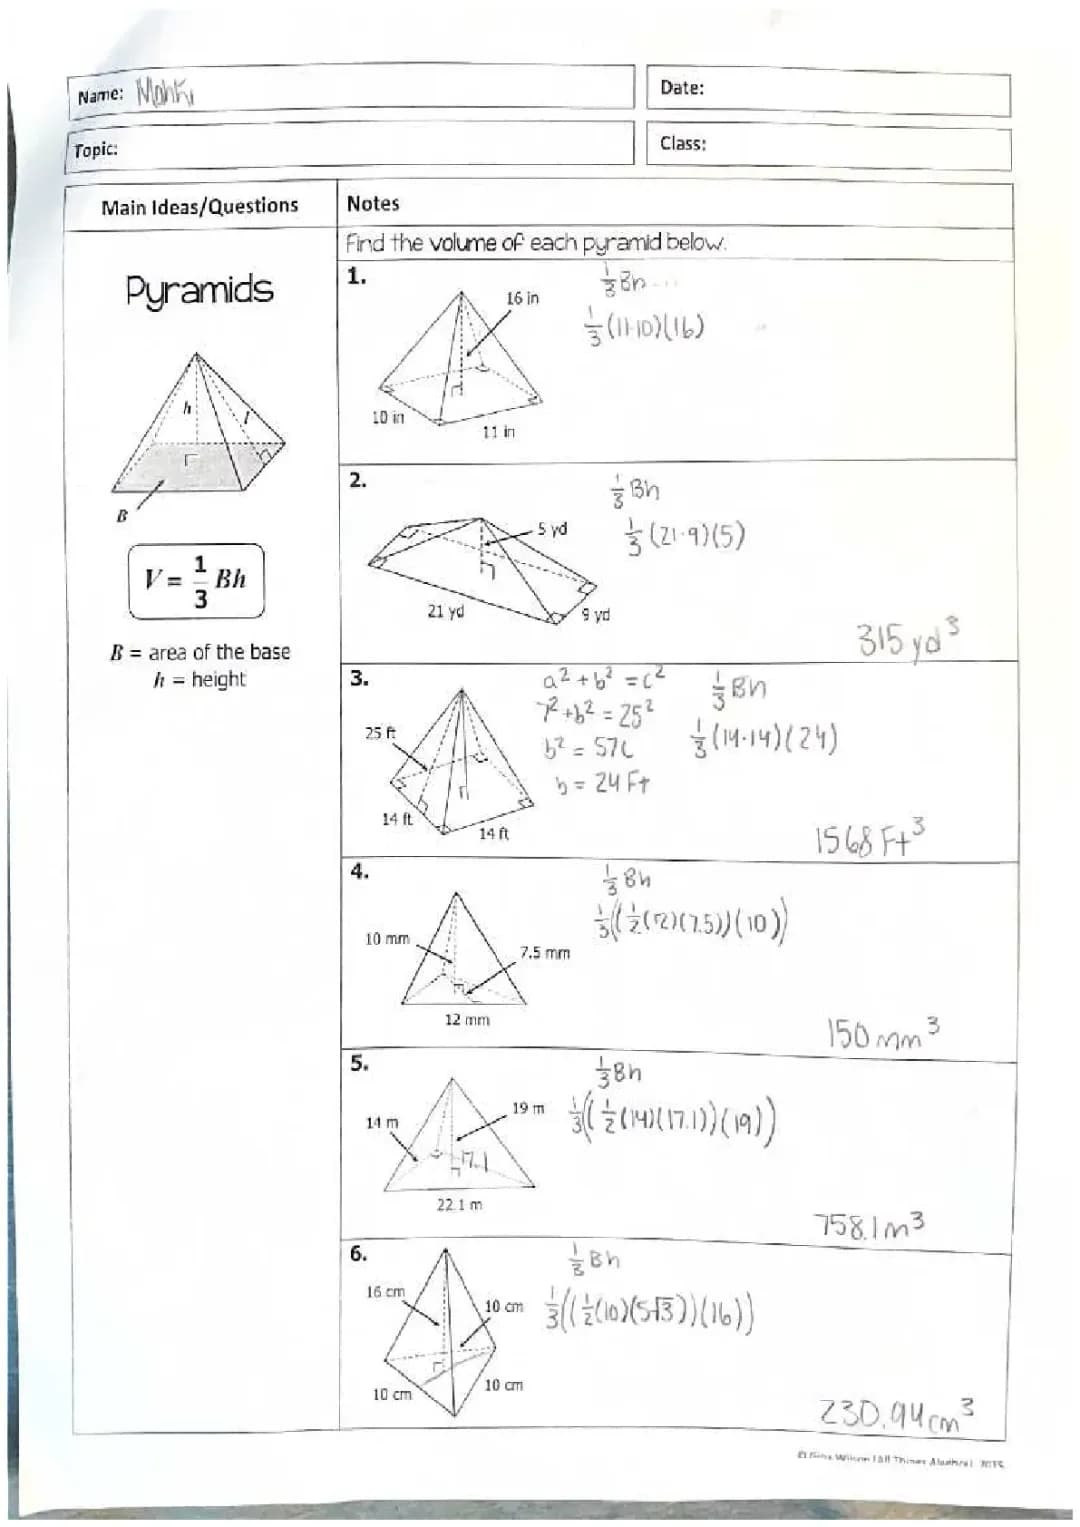 Name: Mahki
Date:
Topic:
Class:
Main Ideas/Questions
Notes
Pyramids
h
l
B
V = 1/3 Bh
B = area of the base
h = height
Find the volume of each pyramid below.
1.
16 in
10 in
11 in
1/3 Bh
1/3 (11·10)(16)
2.
5 yd
21 yd
9 yd
1/3 Bh
1/3 (21·9)(5)
315 yd³
3.
25 ft
14 ft
14 ft
a² + b² = c²
7² + b² = 25²
b² = 576
b = 24 Ft
1/3 Bh
1/3 (14·14)(24)
1568 Ft³
4.
10 mm
7.5 mm
12 mm
1/3 Bh
1/3((1/2(12)(7.5))(10))
150 mm³
5.
14 m
19 m
17.1
22.1 m
1/3 Bh
1/3((1/2(14)(17.1))(19))
758.1 m³
6.
16 cm
10 cm
10 cm
10 cm
1/3 Bh
1/3((1/2(10)(5√3))(16))
230.94 cm³
© Gina Wilson (All Things Algebra), 2015